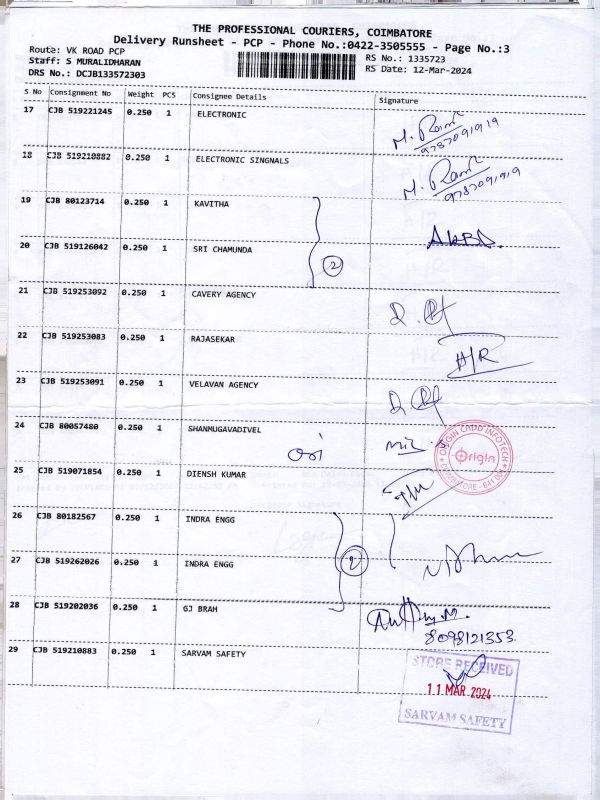 THE PROFESSIONAL COURIERS, COIMBATORE
Delivery Runsheet - PCP - Phone No.:0422-3505555 - Page No.:3
Route: VK ROAD PCP RS No.: 1335723
Staff: S MURALIDHARAN RS Date: 12-Mar-2024
DRS No.: DCJB133572303
S No Consignment No Weight PCS Consignee Details Signature
17 CJB 519221245 0.250 1 ELECTRONIC
M. Ram
9787091919
18 CJB 519210882 0.250 1 ELECTRONIC SINGNALS
M. Ram
9787091919
19 CJB 80123714 0.250 1 KAVITHA
20 CJB 519126042 0.250 1 SRI CHAMUNDA
2
21 CJB 519253092 0.250 1 CAVERY AGENCY
22 CJB 519253083 0.250 1 RAJASEKAR
H/R
23 CJB 519253091 0.250 1 VELAVAN AGENCY
24 CJB 80057480 0.250 1 SHANMUGAVADIVEL
Origin
25 CJB 519071854 0.250 1 DIENSH KUMAR
26 CJB 80182567 0.250 1 INDRA ENGG
27 CJB 519262026 0.250 1 INDRA ENGG
28 CJB 519202036 0.250 1 GJ BRAH
8098121353
29 CJB 519210883 0.250 1 SARVAM SAFETY
STORE RECEIVED
11 MAR 2024
SARVAM SAFETY